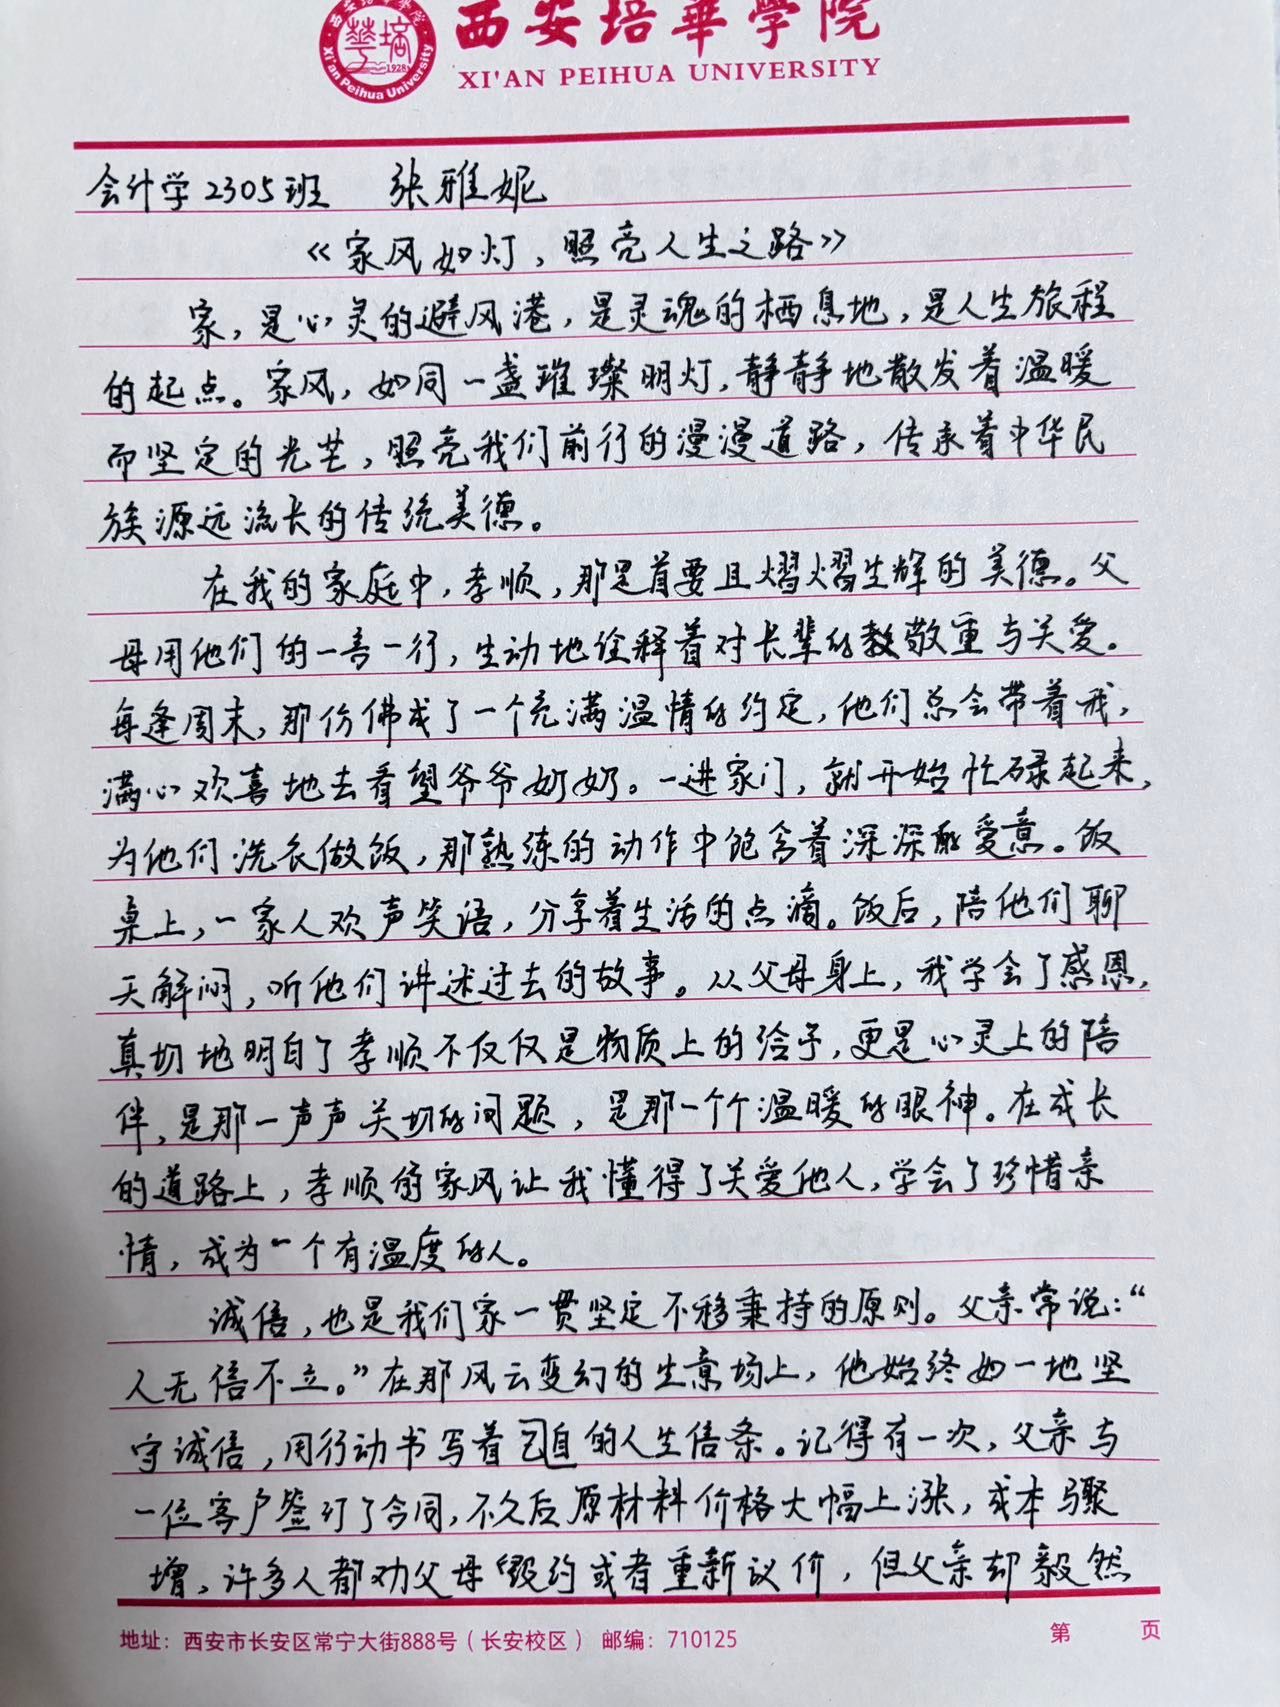 西安培華学院
XI'AN PEIHUA UNIVERSITY
会计学2305班 张雅妮
《家风如灯，照亮人生之路》
家，是心灵的避风港，是灵魂的栖息地，是人生旅程
的起点。家风，如同一盏璀璨明灯，静静地散发着温暖
而坚定的光芒，照亮我们前行的漫漫道路，传承着中华民
族源远流长的传统美德。
在我的家庭中，孝顺，那是首要且熠熠生辉的美德。父
母用他们的一言一行，生动地诠释着对长辈的敬重与关爱。
每逢周末，那仿佛成了一个充满温情的约定，他们总会带着我，
满心欢喜地去看望爷爷奶奶。一进家门，就开始忙碌起来，
为他们洗衣做饭，那熟练的动作中饱含着深深的爱意。饭
桌上，一家人欢声笑语，分享着生活的点滴。饭后，陪他们聊
天解闷，听他们讲述过去的故事。从父母身上，我学会了感恩，
真切地明白了孝顺不仅仅是物质上的给予，更是心灵上的陪
伴，是那一声声关切的问题，是那一个个温暖的眼神。在成长
的道路上，孝顺的家风让我懂得了关爱他人，学会了珍惜亲
情，成为一个有温度的人。
诚信，也是我们家一贯坚定不移秉持的原则。父亲常说：“
人无信不立。”在那风云变幻的生意场上，他始终如一地坚
守诚信，用行动书写着己自的人生信条。记得有一次，父亲与
一位客户签订了合同，不久后原材料价格大幅上涨，成本骤
增，许多人都劝父母毁约或者重新议价，但父亲却毅然
地址：西安市长安区常宁大街888号（长安校区） 邮编：710125 第 页